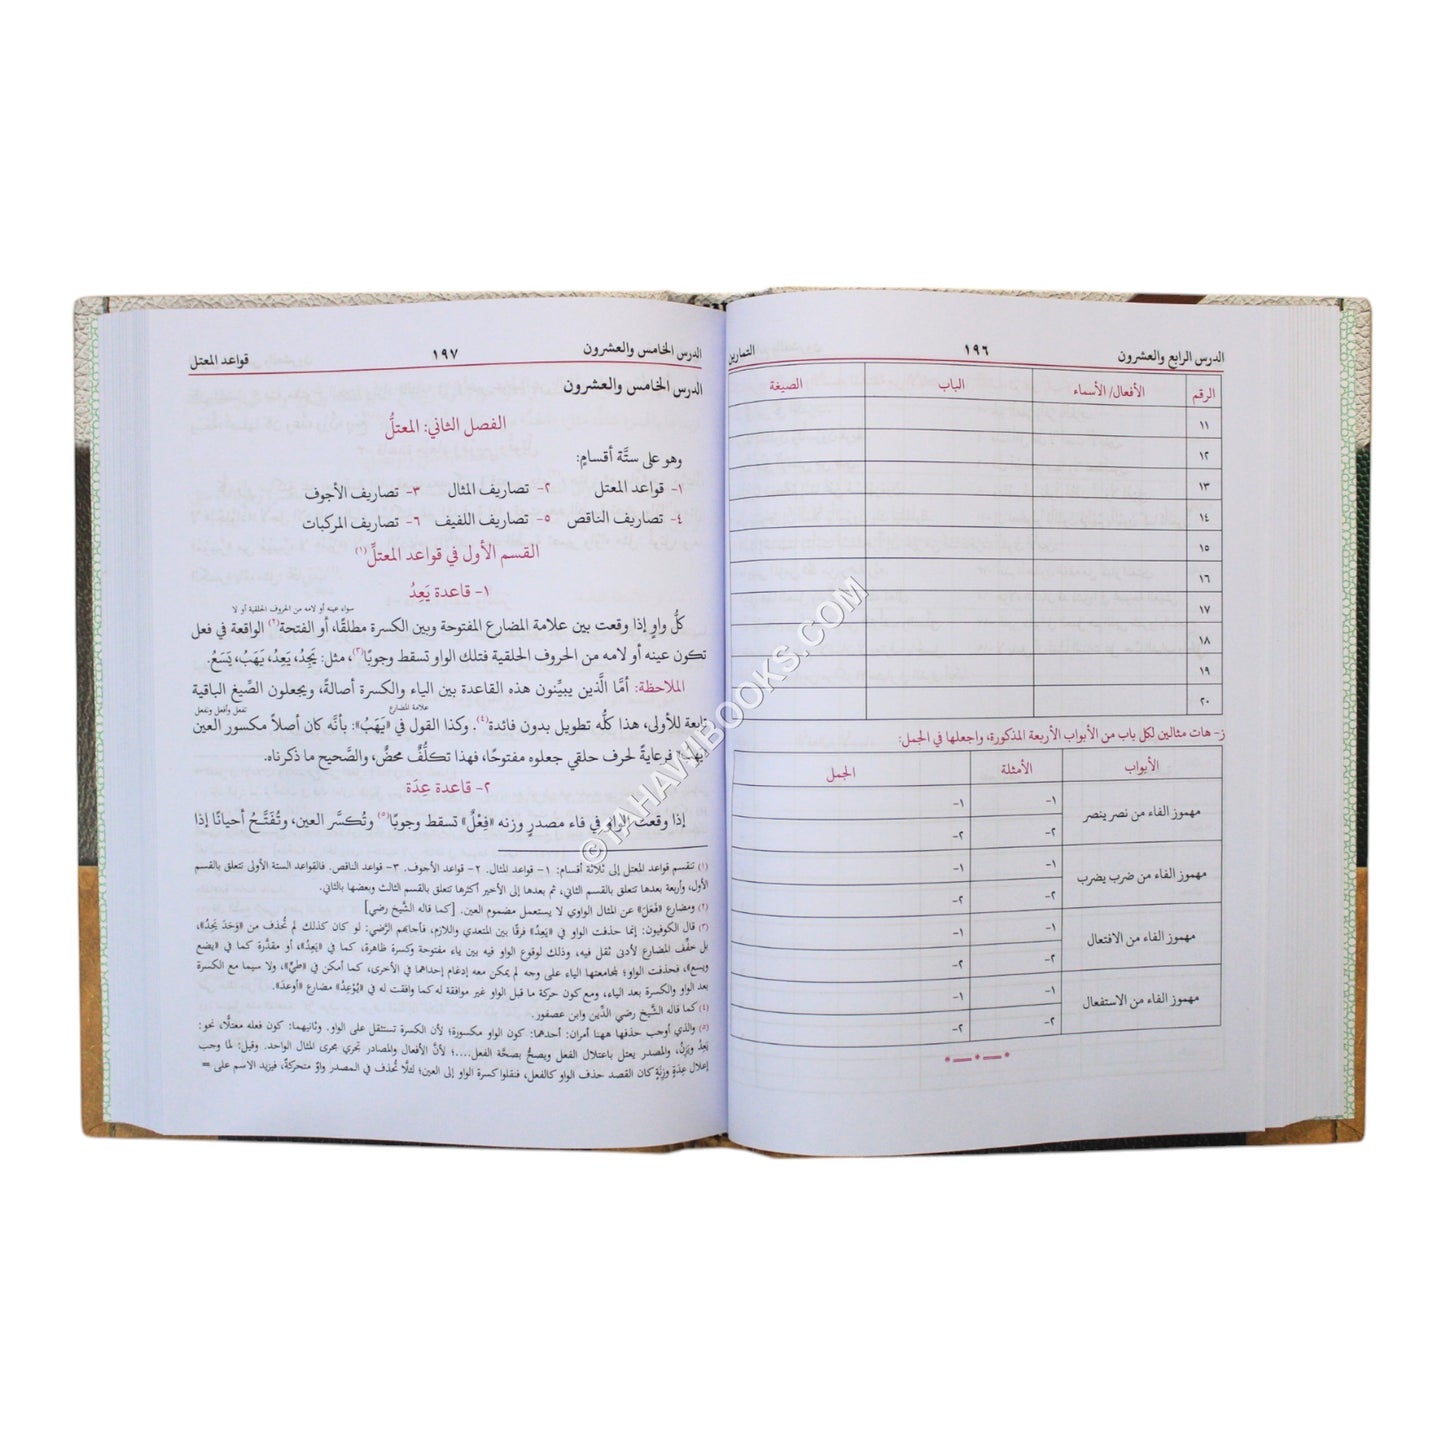 الدرس الرابع والعشرون ١٩٦ التمارين
الرقم الأفعال/ الأسماء الباب الصيغة
١١
١٢
١٣
١٤
١٥
١٦
١٧
١٨
١٩
٢٠
ز- هات مثالين لكل باب من الأبواب الأربعة المذكورة، واجعلها في الجمل:
الأبواب الأمثلة الجمل
مهموز الفاء من نصر ينصر ١- ١-
٢- ٢-
مهموز الفاء من ضرب يضرب ١- ١-
٢- ٢-
مهموز الفاء من الافتعال ١- ١-
٢- ٢-
مهموز الفاء من الاستفعال ١- ١-
٢- ٢-
الدرس الخامس والعشرون ١٩٧ قواعد المعتل
الدرس الخامس والعشرون
الفصل الثاني: المعتلُّ
وهو على ستَّة أقسامٍ:
١- قواعد المعتل ٢- تصاريف المثال ٣- تصاريف الأجوف
٤- تصاريف الناقص ٥- تصاريف اللفيف ٦- تصاريف المركبات
القسم الأول في قواعد المعتلِّ (١)
١- قاعدة يَعِدُ
سواء عينه أو لامه من الحروف الحلقية أو لا
كلُّ واوٍ إذا وقعت بين علامة المضارع المفتوحة وبين الكسرة مطلقًا، أو الفتحة(٢) الواقعة في فعل
تكون عينه أو لامه من الحروف الحلقية فتلك الواو تسقط وجوبًا(٣)، مثل: يَجِدُ، يَعِدُ، يَهَبُ، يَسَعُ.
الملاحظة: أمَّا الَّذين يبيِّنون هذه القاعدة بين الياء والكسرة أصالةً، ويجعلون الصِّيغ الباقية
علامة المضارع تفعل وأفعل ونفعل
تابعة للأولى، هذا كلُّه تطويل بدون فائدة(٤). وكذا القول في «يَهَبُ»: بأنَّه كان أصلاً مكسور العين
فرعايةً لحرف حلقي جعلوه مفتوحًا، فهذا تكلُّفٌ محضٌ، والصَّحيح ما ذكرناه.
٢- قاعدة عِدَة
إذا وقعت الواو في فاء مصدرٍ وزنه «فِعْلٌ» تسقط وجوبًا(٥) وتُكسَّر العين، وتُفَتَّحُ أحيانًا إذا
(١) تنقسم قواعد المعتل إلى ثلاثة أقسام: ١- قواعد المثال. ٢- قواعد الأجوف. ٣- قواعد الناقص. فالقواعد الستة الأولى تتعلق بالقسم
الأول، وأربعة بعدها تتعلق بالقسم الثاني، ثم بعدها إلى الأخير أكثرها تتعلق بالقسم الثالث وبعضها بالثاني.
(٢) ومضارع «فَعَلَ» عن المثال الواوي لا يستعمل مضموم العين. [كما قاله الشَّيخ رضي]
(٣) قال الكوفيون: إنما حذفت الواو في «يَعِدُ» فرقًا بين المتعدي واللازم، فأجابهم الرَّضي: لو كان كذلك لم تُحذف من «وَحَدَ يَحِدُ»،
بل خفِّف المضارع لأدنى ثقل فيه، وذلك لوقوع الواو فيه بين ياء مفتوحة وكسرة ظاهرة، كما في «يَعِدُ»، أو مقدَّرة كما في «يضع
ويسع»، فحذفت الواو؛ لمجامعتها الياء على وجه لم يمكن معه إدغام إحداهما في الأخرى، كما أمكن في «طيّ»، ولا سيما مع الكسرة
بعد الواو والكسرة بعد الياء، ومع كون حركة ما قبل الواو غير موافقة له كما وافقت له في «يُوْعِدُ» مضارع «أوعدَ».
(٤) كما قاله الشَّيخ رضي الدِّين وابن عصفور.
(٥) والذي أوجب حذفها ههنا أمران: أحدهما: كون الواو مكسورة؛ لأن الكسرة تستثقل على الواو. وثانيهما: كون فعله معتلًّا، نحو:
يَعِدُ ويَزِنُ، والمصدر يعتل باعتلال الفعل ويصحُّ بصحَّة الفعل....؛ لأنَّ الأفعال والمصادر تجري مجرى المثال الواحد. وقيل: لما وجب
إعلال عِدَةٍ وزِنَةٍ كان القصد حذف الواو كالفعل، فنقلوا كسرة الواو إلى العين؛ لئلَّا تُحذف في المصدر واوٌ متحركةٌ، فيزيد الاسم على =
©TAHAVIBOOKS.COM